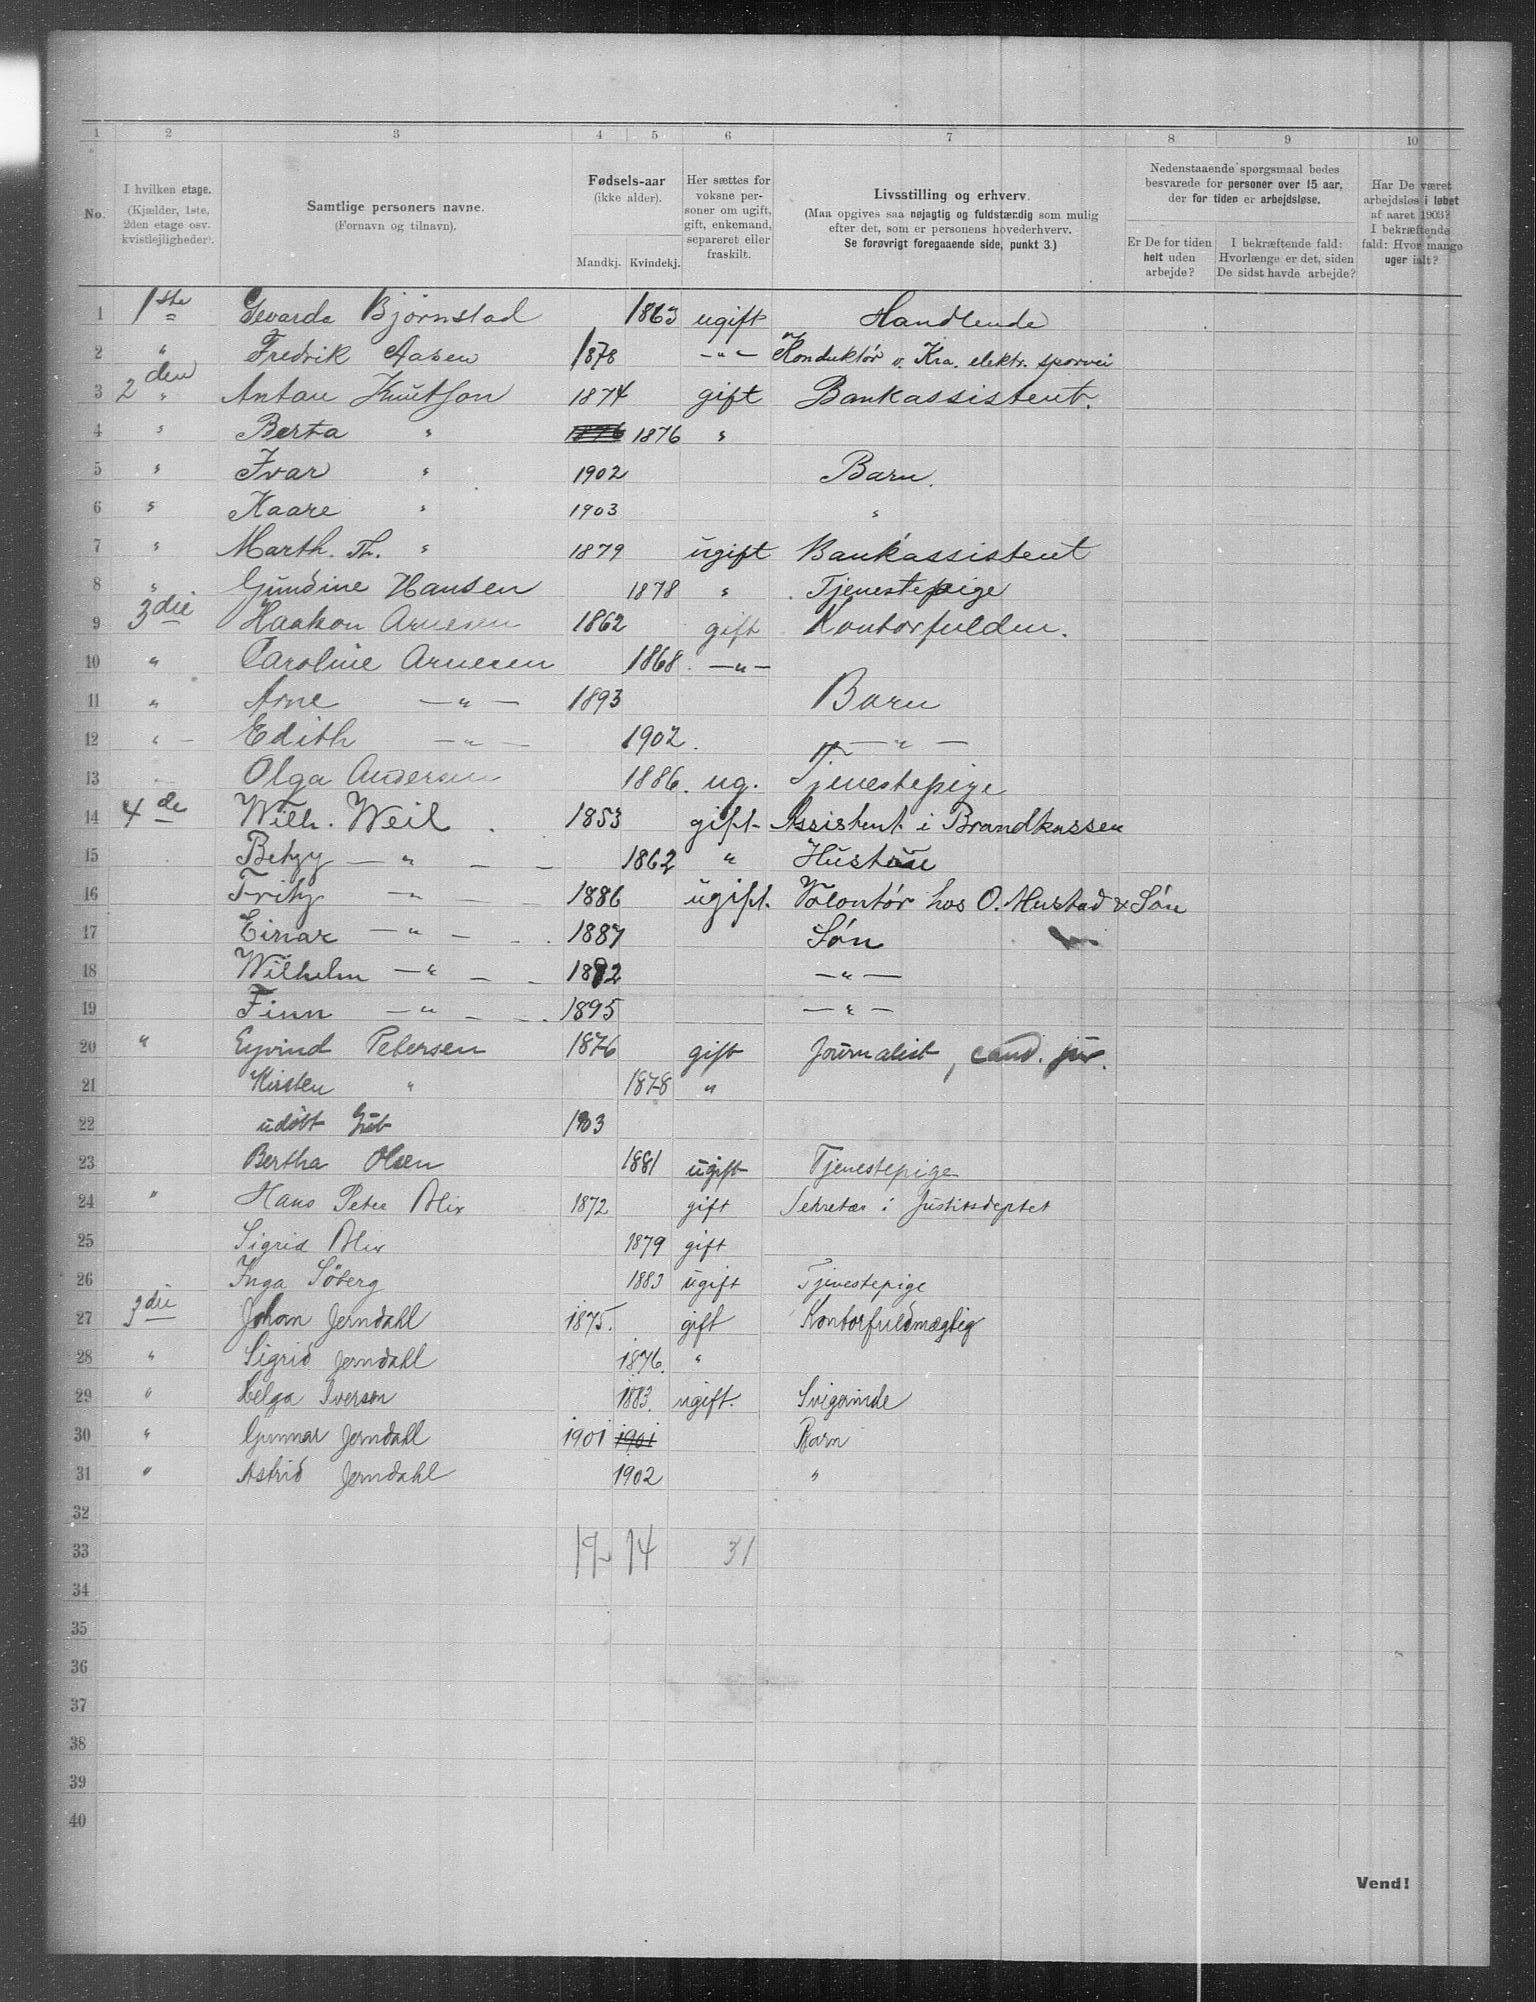 1 2 3 4 5 6 7 8 9 10
No.
I hvilken etage. (Kjælder, 1ste, 2den etage osv. kvistlejligheder).
Samtlige personers navne. (Fornavn og tilnavn).
Fødsels-aar (ikke alder).
Mandkj. Kvindekj.
Her sættes for voksne personer om ugift, gift, enkemand, separeret eller fraskilt.
Livsstilling og erhverv.
(Maa opgives saa nøjagtig og fuldstærdig som mulig efter det, som er personens hovederhverv.
Se forøvrigt foregaaende side, punkt 3.)
Nedenstaaende spørgsmaal bedes besvarede for personer over 15 aar, der for tiden er arbejdsløse.
Er De for tiden helt uden arbejde?
I bekræftende fald: Hvorlænge er det, siden De sidst havde arbejde?
Har De været arbejdsløs i løbet af aaret 1903? I bekræftende fald: Hvor mange uger ialt?
1 1ste Bjørnstad 1863 ugift Handlende
2 " Fredrik Aasen 1878 -"- Konduktør v. Kra. elektr. sporvei
3 2den " Anton Knutson 1874 gift Bankassistent.
4 " Berta " 1876 1876 "
5 " Ivar " 1902 Barn.
6 " Kaare " 1903 "
7 " Marth. Th. " 1879 ugift Bankassistent
8 " Gundine Hansen 1878 " Tjenestepige
9 3die Haakon Arnesen 1862 gift Kontorfulden.
10 " Caroline Arnesen 1868. -"-
11 " Arne -"- 1893 Barn
12 " Edith -"- 1902. -"-
13 Olga Andersen 1886. ug. Tjenestepige
14 4de Wilh. Weil 1853 gift Assistent i Brandkassen
15 Betzy -"- 1862 " Hustrue
16 Fritz " 1886 ugift. Volontør hos O. Mustad & Søn
17 Einar -"- 1887 Søn
18 Wilhelm -"- 1892 -"-
19 Finn -"- 1895 -"-
20 " Eyvind Petersen 1876 gift Journalist, cand. jur.
21 Kirsten " 1878 "
22 udøbt Gut 1903
23 Bertha Olsen 1881 ugift Tjenestepige
24 " Hans Peter Blix 1872 gift Sekretær i Justitsdeptet
25 Sigrid Blix 1879 gift
26 Inga Söberg 1883 ugift Tjenestepige
27 3die Johan Jerndahl 1875. gift Kontorfuldmægtig
28 " Sigrid Jerndahl 1876. "
29 " Helga Iversen 1883. ugift. Svigerinde
30 " Gunnar Jerndahl 1901 1901 Barn
31 " Astrid Jerndahl 1902 "
32
33 17 14 31
34
35
36
37
38
39
40
Vend!